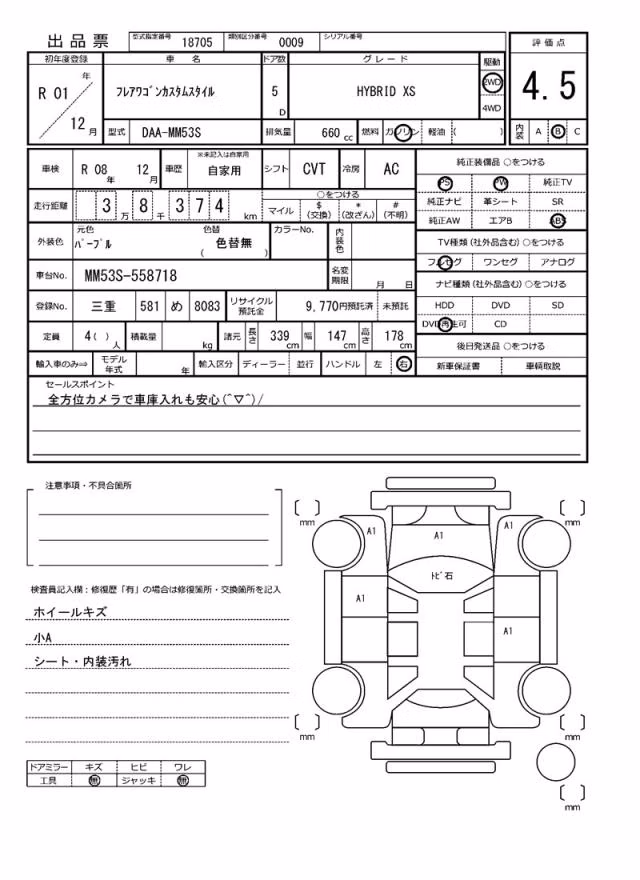 出品票 型式指定番号 18705 類別区分番号 0009 シリアル番号
初年度登録 車名 ドア数 グレード 駆動 評価点
R 01 年 12 月 フレアワゴンカスタムスタイル 5 D HYBRID XS 2WD 4WD 4.5
型式 DAA-MM53S 排気量 660 cc 燃料 ガソリン 軽油 ( ) 内装 A B C
車検 R 08 年 12 月 車歴 ※未記入は自家用 自家用 シフト CVT 冷房 AC
走行距離 3 万 8 千 3 7 4 km ○をつける マイル $ (交換) * (改ざん) # (不明)
外装色 元色 パープル 色替 ( 色替無 ) カラーNo. 内装色
車台No. MM53S-558718 名変期限 月 日
登録No. 三重 581 め 8083 リサイクル預託金 9,770円預託済 未預託
定員 4 ( ) 人 積載量 kg 諸元 長さ 339 cm 幅 147 cm 高さ 178 cm
輸入車のみ⇒ モデル年式 年 輸入区分 ディーラー 並行 ハンドル 左 右
純正装備品 ○をつける
PS PW 純正TV
純正ナビ 革シート SR
純正AW エアB ABS
TV種類 (社外品含む) ○をつける
フルセグ ワンセグ アナログ
ナビ種類 (社外品含む) ○をつける
HDD DVD SD
DVD再生可 CD
後日発送品 ○をつける
新車保証書 車輌取説
セールスポイント
全方位カメラで車庫入れも安心(^▽^)/
注意事項・不具合箇所
検査員記入欄：修復歴「有」の場合は修復箇所・交換箇所を記入
ホイールキズ
小A
シート・内装汚れ
ドアミラー キズ ヒビ ワレ
工具 無 ジャッキ 無
mm mm
A1 A1 A1
トビ石
A1
A1
mm mm
mm